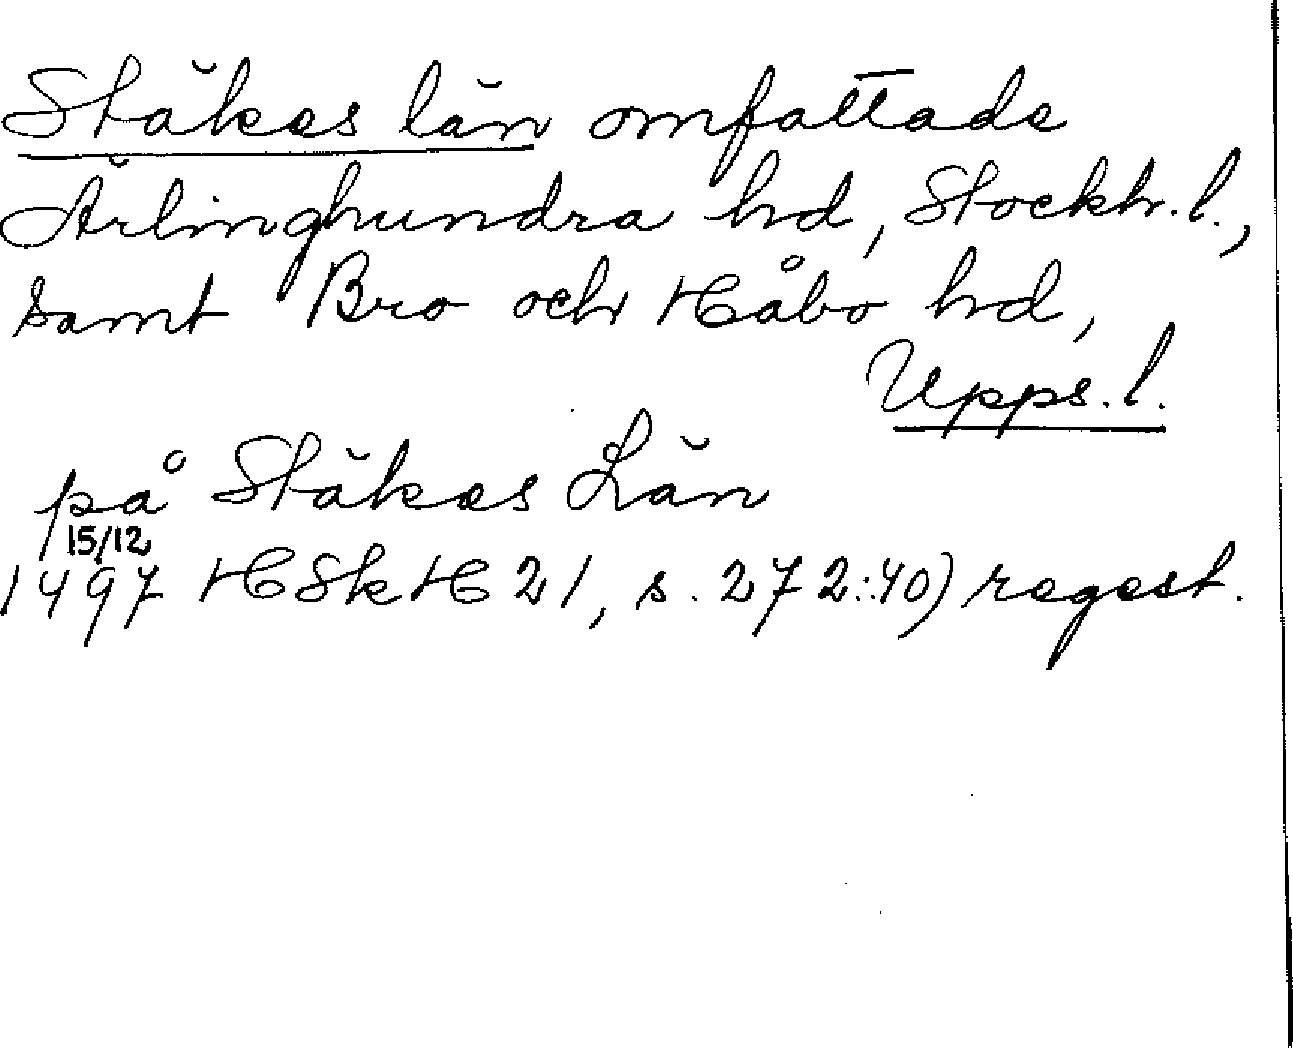 Stäkes län omfattade
Ärlinghundra hd, Stockh. l.,
samt Bro och Håbo hd,
Upps. l.
på Stäkes Län
15/12
1497 HSkH 21, s. 272:40) regest.